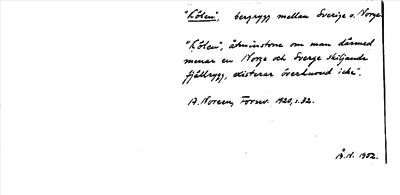 "Kölen", bergrygg mellan Sverige o. Norge
"Kölen", åtminstone om man därmed
menar en Norge och Sverge skiljande
fjällrygg, existerar överhuvud icke".
A. Noreen, Fornv. 1920, s. 32.
Å.N. 1952.